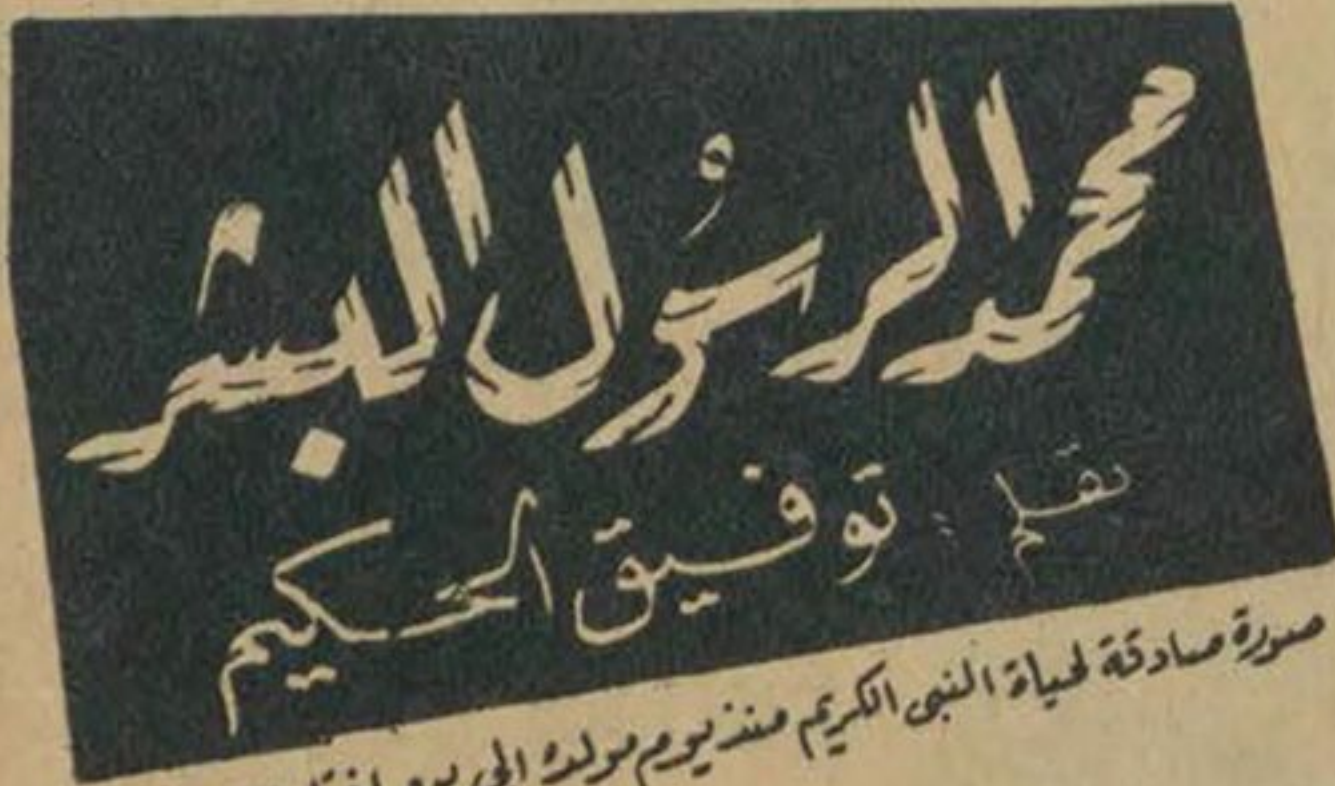 محمد الرسول البشر
بقلم توفيق الحكيم
صورة صادقة لحياة النبى الكريم منذ يوم مولده الى يوم